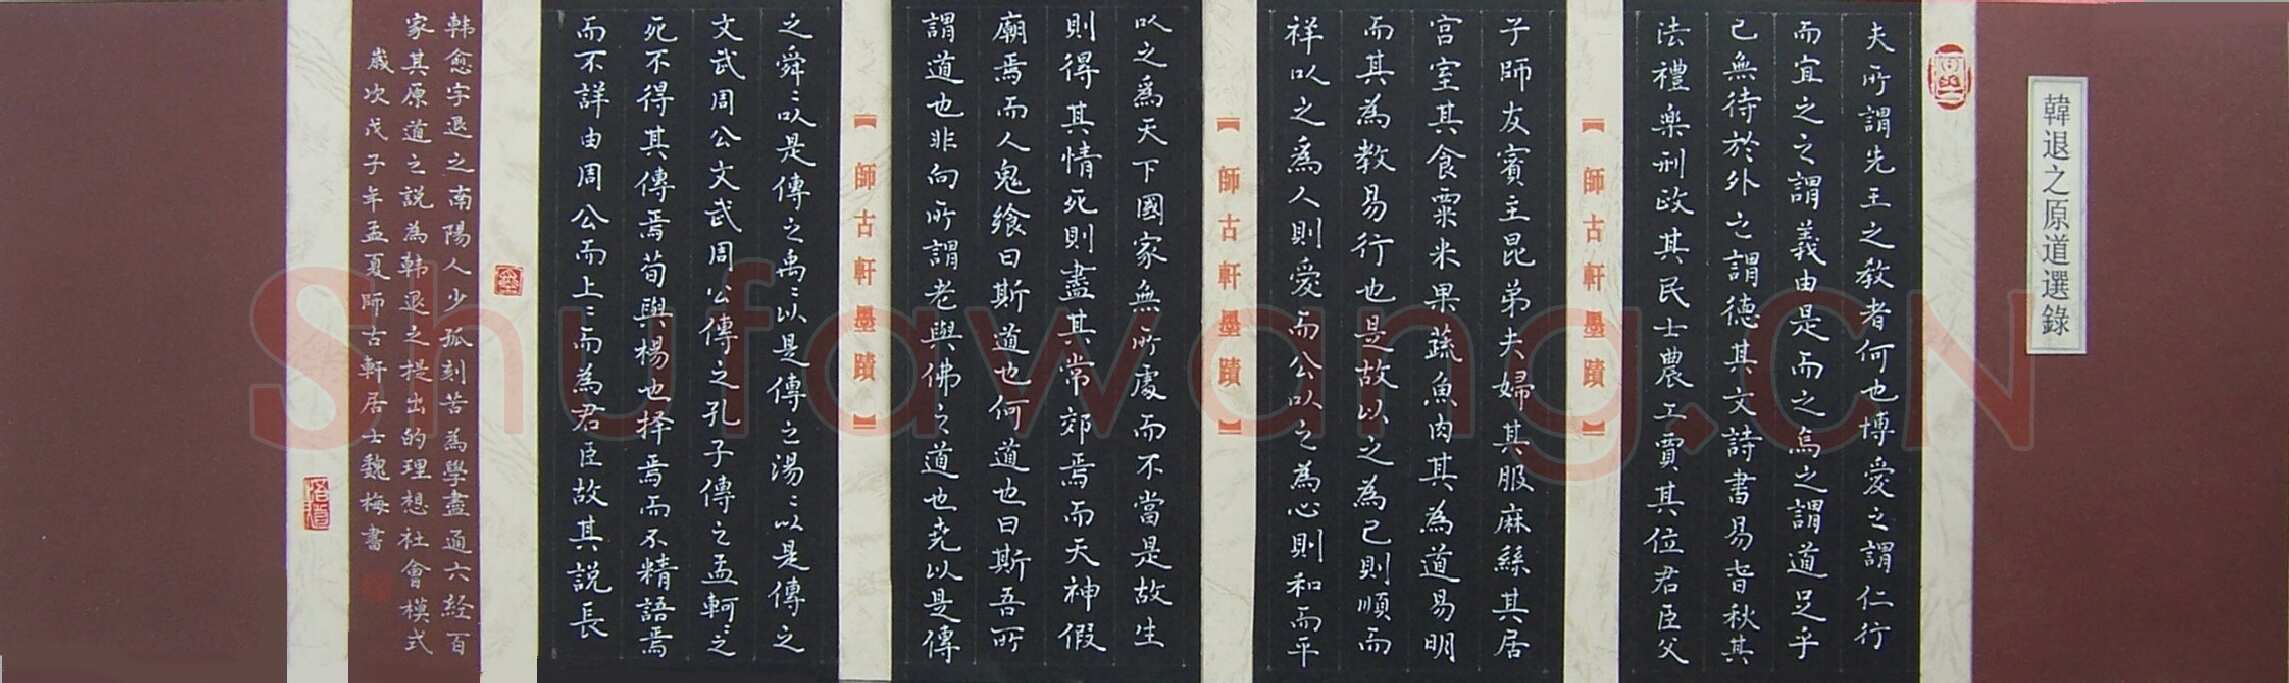 韓退之原道選錄
夫所謂先王之教者何也博愛之謂仁行
而宜之之謂義由是而之焉之謂道足乎
己無待於外之謂德其文詩書易春秋其
法禮樂刑政其民士農工賈其位君臣父
【師古軒墨蹟】
子師友賓主昆弟夫婦其服麻絲其居
宮室其食粟米果蔬魚肉其為道易明
而其為教易行也是故以之為己則順而
祥以之為人則愛而公以之為心則和而平
【師古軒墨蹟】
以之為天下國家無所處而不當是故生
則得其情死則盡其常郊焉而天神假
廟焉而人鬼飨曰斯道也何道也曰斯吾所
謂道也非向所謂老與佛之道也堯以是傳
【師古軒墨蹟】
之舜〻以是傳之禹〻以是傳之湯〻以是傳之
文武周公文武周公傳之孔子傳之孟軻〻之
死不得其傳焉荀與楊也择焉而不精語焉
而不詳由周公而上〻而為君由周公而下〻而為臣故其說長
韩愈字退之南陽人少孤刻苦為學盡通六经百
家其原道之説為韩退之提出的理想社會模式
歲次戊子年孟夏師古軒居士魏梅書
Shufawang.CN